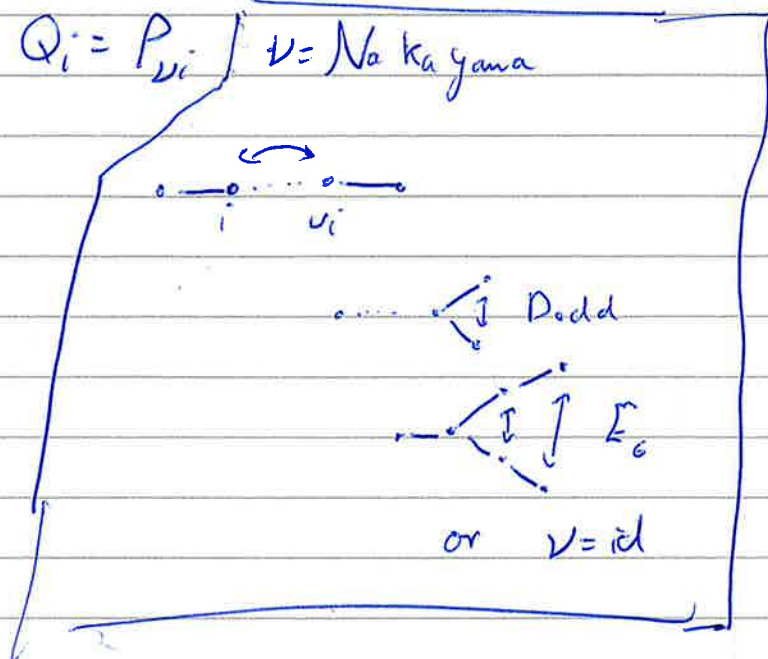 Q_i = P_{νi} ν = Nakayama
i νi
D_odd
E_6
or ν = id